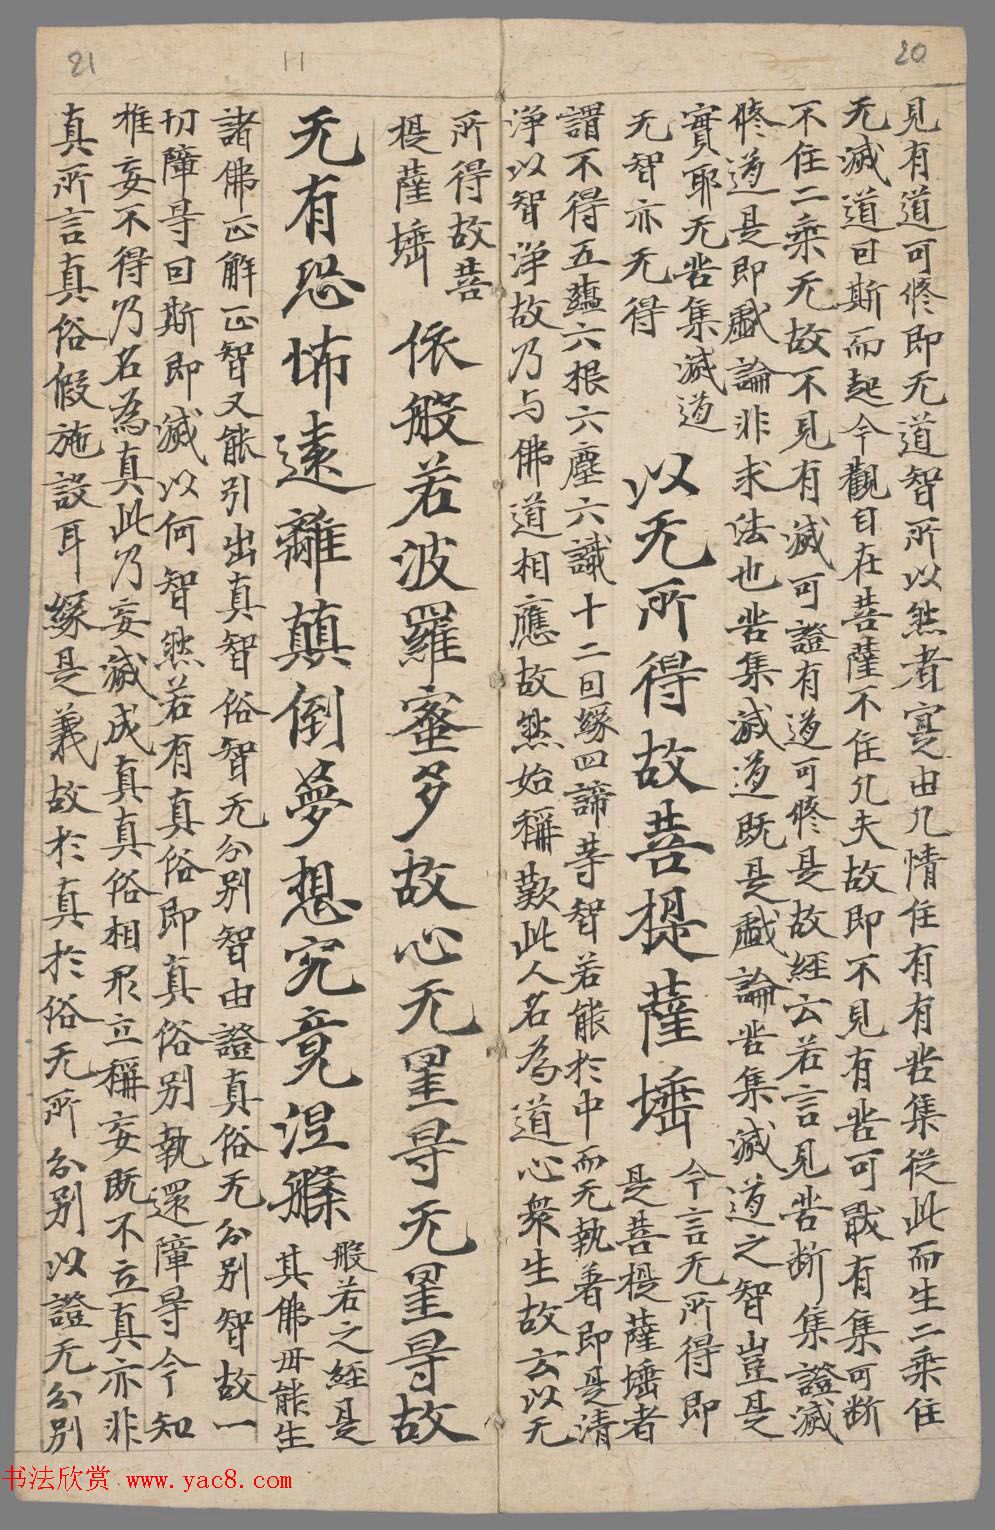 20
見有道可修即无道智所以然者寔由凡情住有有苦集從此而生二乘住
无滅道因斯而起今觀自在菩薩不住凡夫故即不見有苦可戢有集可斷
不住二乘无故不見有滅可證有道可修是故經云若言見苦斷集證滅
修道是即戲論非求法也苦集滅道既是戲論苦集滅道之智豈是
實耶无苦集滅道
无智亦无得
以无所得故菩提薩埵
今言无所得即
是菩提薩埵者
謂不得五蘊六根六塵六識十二因緣四諦等智若能於中而无執著即是清
淨以智淨故乃与佛道相應故然始稱歎此人名為道心衆生故云以无
11
21
所得故菩
提薩埵
依般若波羅蜜多故心无罣㝵无罣㝵故
无有恐怖遠離顛倒夢想究竟涅槃
般若之經是
其佛毋能生
諸佛正解正智又能引出真智俗智无分别智由證真俗无分别智故一
切障㝵因斯即滅以何智然若有真俗即真俗别執還障㝵今知
推妄不得乃名為真此乃妄滅成真真俗相形立稱妄既不立真亦非
真所言真俗假施設耳緣是義故於真於俗无所分别以證无分别
书法欣赏 www.yac8.com